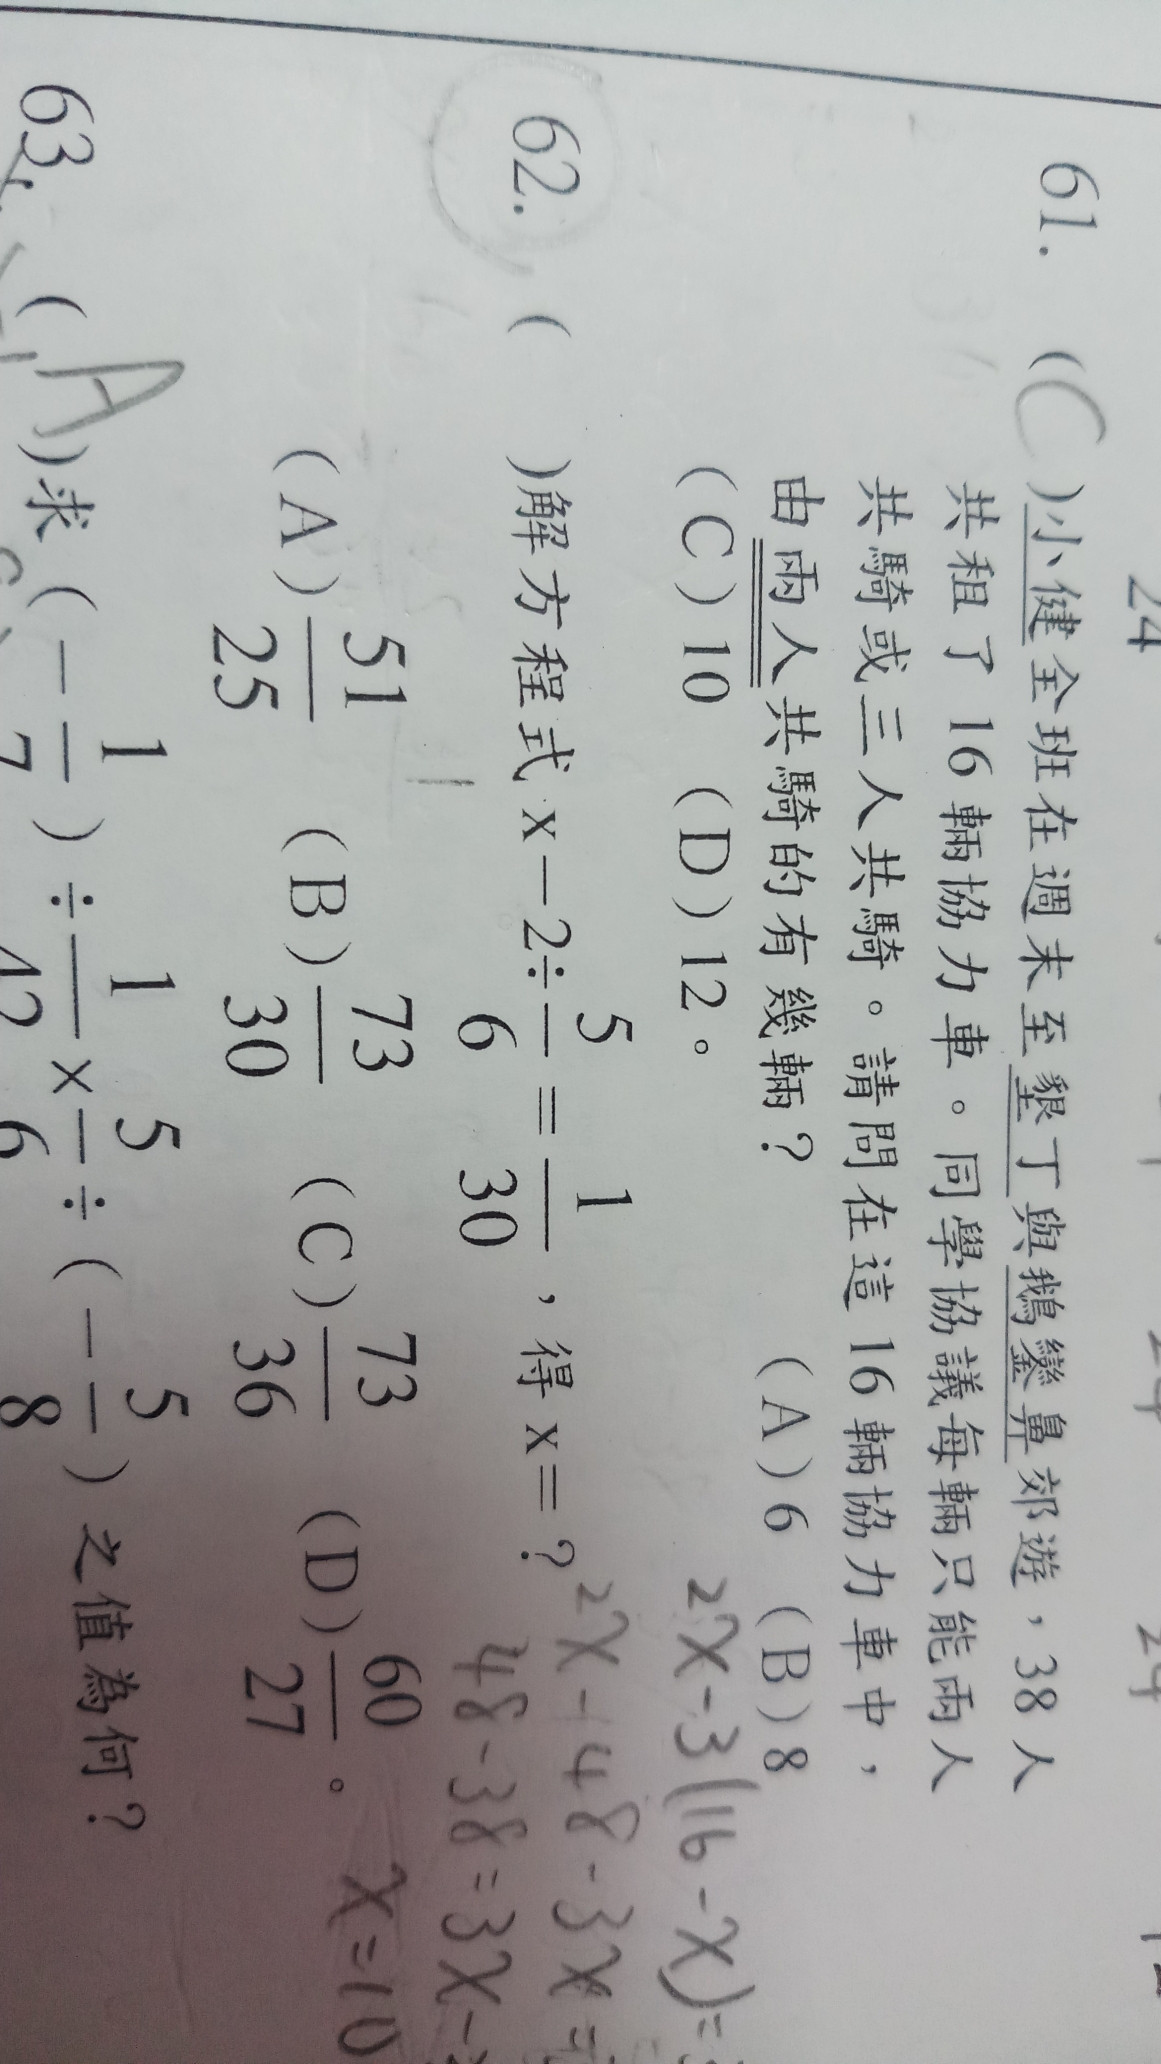 24
61. (C)小健全班在週末至墾丁與鵝鑾鼻郊遊，38人
共租了16輛協力車。同學協議每輛只能兩人
共騎或三人共騎。請問在這16輛協力車中，
由兩人共騎的有幾輛？ (A)6 (B)8
(C)10 (D)12。
2X-3(16-X)=
62. ( )解方程式 x－2÷5/6＝1/30，得x＝？
2X+48-3X=
48-38=3X-
(A)51/25 (B)73/30 (C)73/36 (D)60/27。
X=10
63. (A)求(－1/7)÷1/42×5/6÷(－5/8)之值為何？